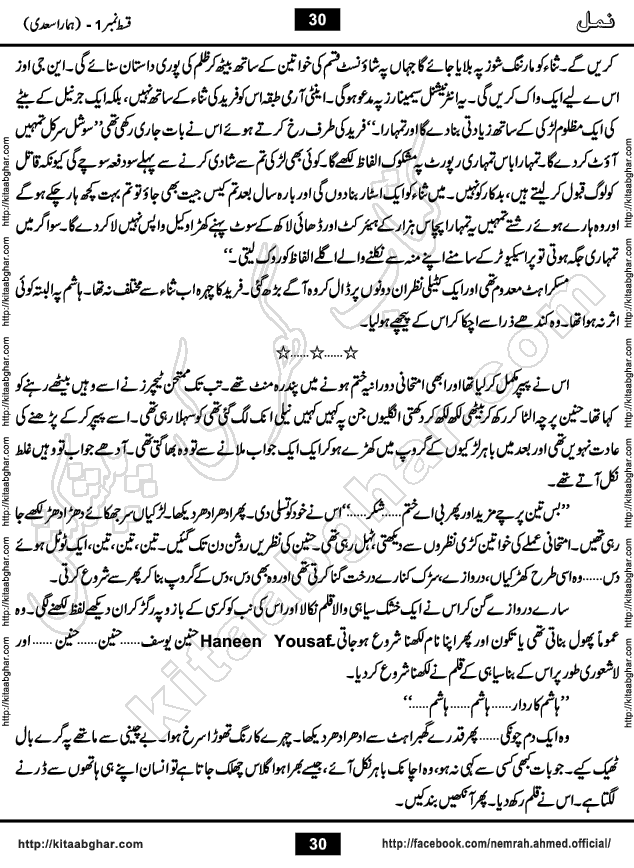 نمل
30
قسط نمبر 1 - (ہمارا سعدی)
کریں گے۔ ثناء کو مارننگ شوز پہ بلایا جائے گا جہاں پہ شاؤنسٹ قسم کی خواتین کے ساتھ بیٹھ کر ظلم کی پوری داستان سنائے گی۔ این جی اوز
اس کے لیے ایک واک کریں گی۔ یہ انٹرنیشنل سیمینارز پہ مدعو ہو گی۔ اینٹی آرمی طبقہ اس کو فرید کی ثناء کے ساتھ نہیں، بلکہ ایک جرنیل کے بیٹے
کی ایک مظلوم لڑکی کے ساتھ زیادتی بنا دے گا اور تمہارا۔‘‘ فرید کی طرف رخ کرتے ہوئے اس نے بات جاری رکھی تھی ’’سوشل سرکل تمہیں
آؤٹ کر دے گا۔ تمہارا باس تمہاری رپورٹ پہ مشکوک الفاظ لکھے گا۔ کوئی بھی لڑکی تم سے شادی کرنے سے پہلے سو دفعہ سوچے گی کیونکہ قاتل
کو لوگ قبول کر لیتے ہیں، بدکار کو نہیں۔ میں ثناء کو ایک اسٹار بنا دوں گی اور بارہ سال بعد تم کیس جیت بھی جاؤ تو تم بہت کچھ ہار چکے ہو گے
اور وہ ہارے ہوئے رشتے تمہیں یہ تمہارا پچاس ہزار کے ہیئر کٹ اور ڈھائی لاکھ کے سوٹ پہنے کھڑا وکیل واپس نہیں لا کر دے گا۔ سو اگر میں
تمہاری جگہ ہوتی تو پراسیکیوٹر کے سامنے اپنے منہ سے نکلنے والے اگلے الفاظ کو روک لیتی۔‘‘
مسکراہٹ معدوم تھی اور ایک کٹیلی نظر ان دونوں پر ڈال کر وہ آگے بڑھ گئی۔ فرید کا چہرہ اب ثناء سے مختلف نہ تھا۔ ہاشم پہ البتہ کوئی
اثر نہ ہوا تھا۔ وہ کندھے ذرا سے اچکا کر اس کے پیچھے ہو لیا۔
☆......☆......☆
اس نے پیپر مکمل کر لیا تھا اور ابھی امتحانی دورانیہ ختم ہونے میں پندرہ منٹ تھے۔ تب تک ممتحن ٹیچرز نے اسے وہیں بیٹھے رہنے کو
کہا تھا۔ حنین پرچہ الٹا کر رکھ کر بیٹھی لکھ لکھ کر دکھتی انگلیوں جن پہ کہیں کہیں نیلی انک لگ گئی تھی کو سہلا رہی تھی۔ اسے پیپر کر کے پڑھنے کی
عادت نہیں تھی اور بعد میں باہر لڑکیوں کے گروپ میں کھڑے ہو کر ایک ایک جواب ملانے سے تو وہ بھاگتی تھی۔ آدھے جواب تو وہیں غلط
نکل آتے تھے۔
’’بس تین پرچے مزید اور پھر بی اے ختم...... شکر......‘‘ اس نے خود کو تسلی دی۔ پھر ادھر ادھر دیکھا۔ لڑکیاں سر جھکائے دھڑا دھڑ لکھے جا
رہی تھیں۔ امتحانی عملے کی خواتین کڑی نظروں سے دیکھتی، ٹہل رہی تھی۔ حنین کی نظریں روشن دن تک گئیں۔ تین، تین، تین، ایک ٹوٹل ہوئے
دس...... وہ اسی طرح کھڑکیاں، دروازے، سڑک کنارے درخت گنا کرتی تھی اور وہ بھی دس، دس کے گروپ بنا کر پھر سے شروع کرتی۔
سارے دروازے گن کر اس نے ایک خشک سیاہی والا قلم نکالا اور اس کی نب کو کرسی کے بازو پہ رگڑ کر ان دیکھے لفظ لکھنے لگی۔ وہ
عموماً پھول بناتی تھی یا تکون اور پھر اپنا نام لکھنا شروع ہو جاتی۔ Haneen Yousaf حنین یوسف...... حنین...... حنین...... اور
لاشعوری طور پر اس کے بنا سیاہی کے قلم نے لکھنا شروع کر دیا۔
’’ہاشم کاردار...... ہاشم...... ہاشم......‘‘
وہ ایک دم چونکی...... پھر قدرے گھبراہٹ سے ادھر ادھر دیکھا۔ چہرے کا رنگ تھوڑا سرخ ہوا۔ بے چینی سے ماتھے پہ گرے بال
ٹھیک کیے۔ جو بات کبھی کسی سے کہی نہ ہو، وہ اچانک باہر نکل آئے، جیسے بھرا ہوا گلاس چھلک جاتا ہے تو انسان اپنے ہی ہاتھوں سے ڈرنے
لگتا ہے۔ اس نے قلم رکھ دیا۔ پھر آنکھیں بند کیں۔
http://kitaabghar.com
30
http://facebook.com/nemrah.ahmed.official/